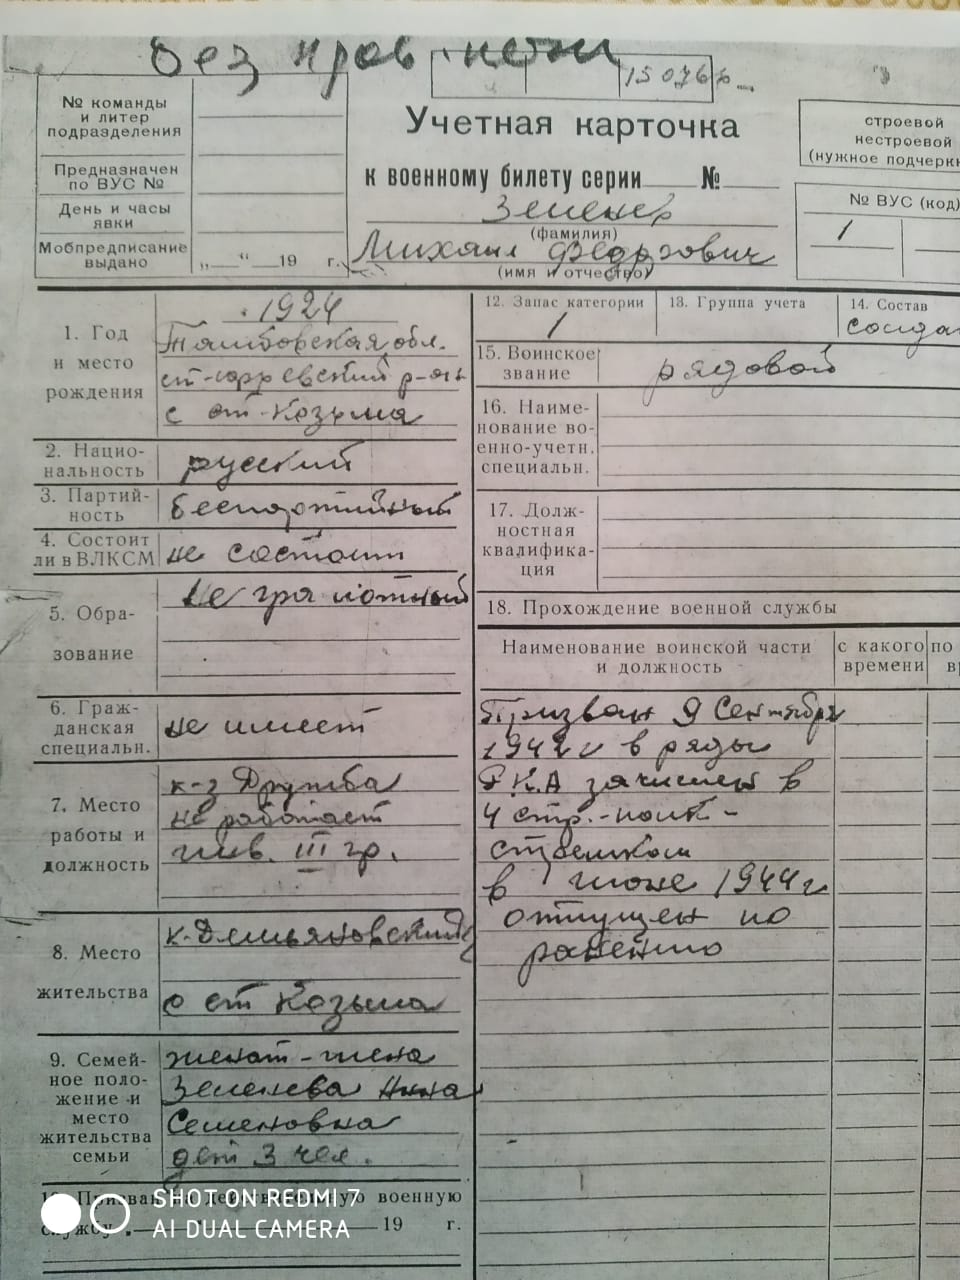 Без
15076
№ команды
и литер
подразделения
Предназначен
по ВУС №
День и часы
явки
Мобпредписание
выдано
„ “ 19 г.
Учетная карточка
к военному билету серии №
(фамилия)
Михаил Федорович
(имя и отчество)
строевой
нестроевой
(нужное подчерк
№ ВУС (код)
1
1. Год
и место
рождения
1924
Тамбовская обл.
ст-юрьевский р-он
с от-Козьма
2. Нацио-
нальность
русский
3. Партий-
ность
беспартийный
4. Состоит
ли в ВЛКСМ
не состоит
5. Обра-
зование
не грамотный
6. Граж-
данская
специальн.
не имеет
7. Место
работы и
должность
к-з Дружба
не работает
инв. III гр.
8. Место
жительства
к-Демьяновский
с от Козьма
9. Семей-
ное поло-
жение и
место
жительства
семьи
женат - жена
Нина
Семеновна
дет 3 чел.
10. Призван на действительную военную
службу 19 г.
12. Запас категории
1
13. Группа учета
14. Состав
солда
15. Воинское
звание
рядовой
16. Наиме-
нование во-
енно-учетн.
специальн.
17. Долж-
ностная
квалифика-
ция
18. Прохождение военной службы
Наименование воинской части
и должность
с какого
времени
по
вр
Призван 9 Сентября
1942 г в ряды
РККА зачислен в
4 стр.-полк-
стрелком
в июне 1944 г
отпущен по
ранению
SHOT ON REDMI 7
AI DUAL CAMERA